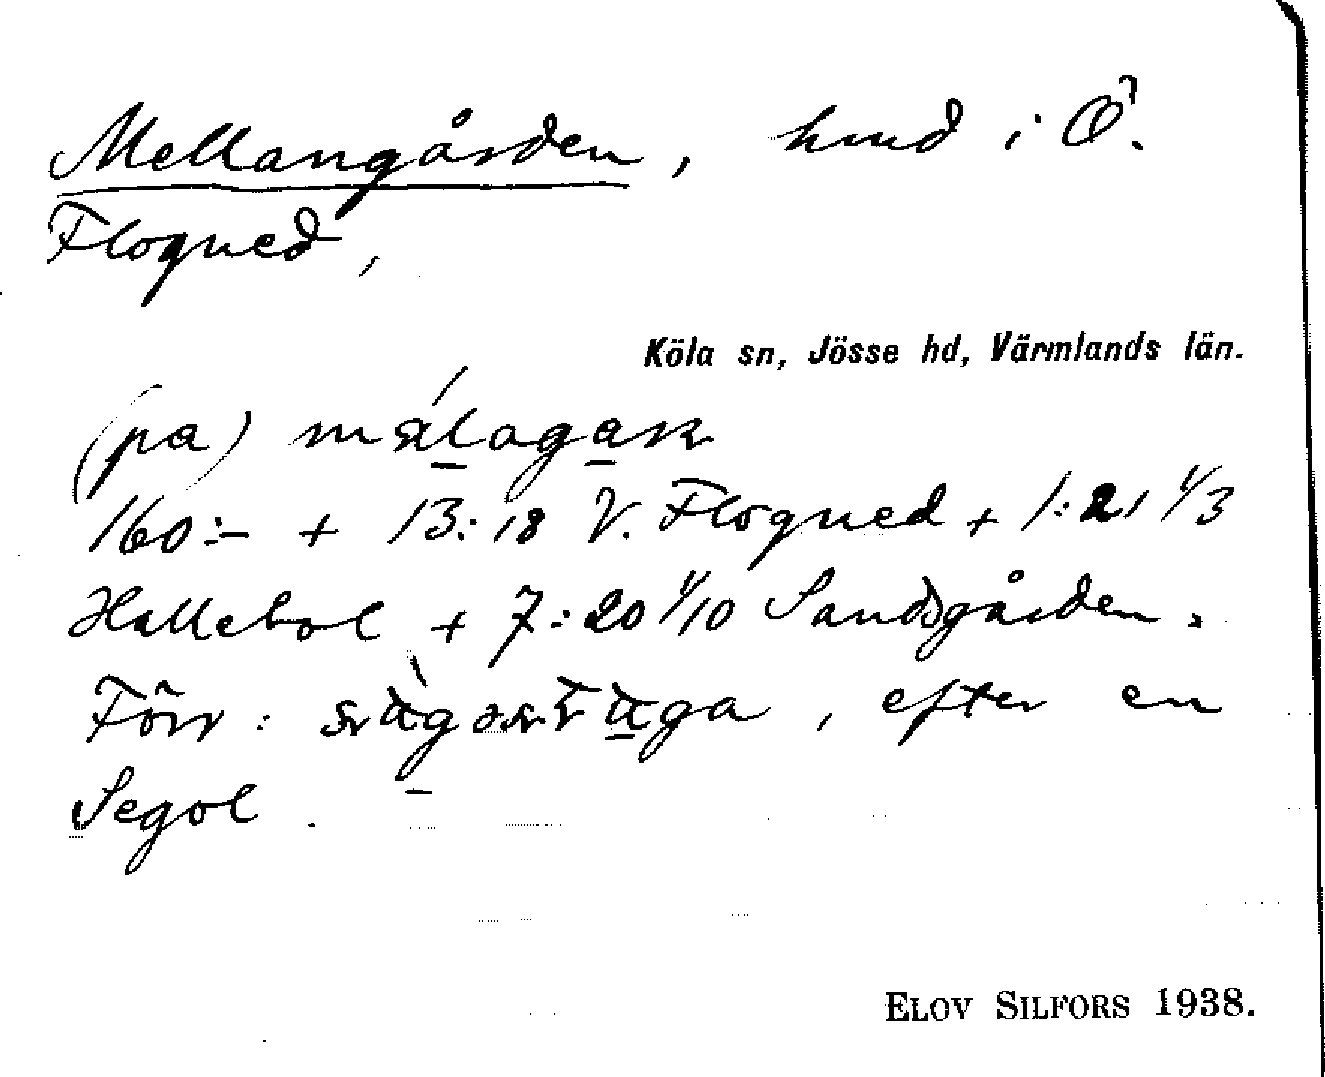 Mellangården, hmd i Ö.
Flogned,
Köla sn, Jösse hd, Värmlands län.
(pa)
160:- + 13:18 V. Flogned + 1:21 1/3
Hallebol + 7:20 1/10 Sandsgården.
Förr: , efter en
Segol.
ELOV SILFORS 1938.